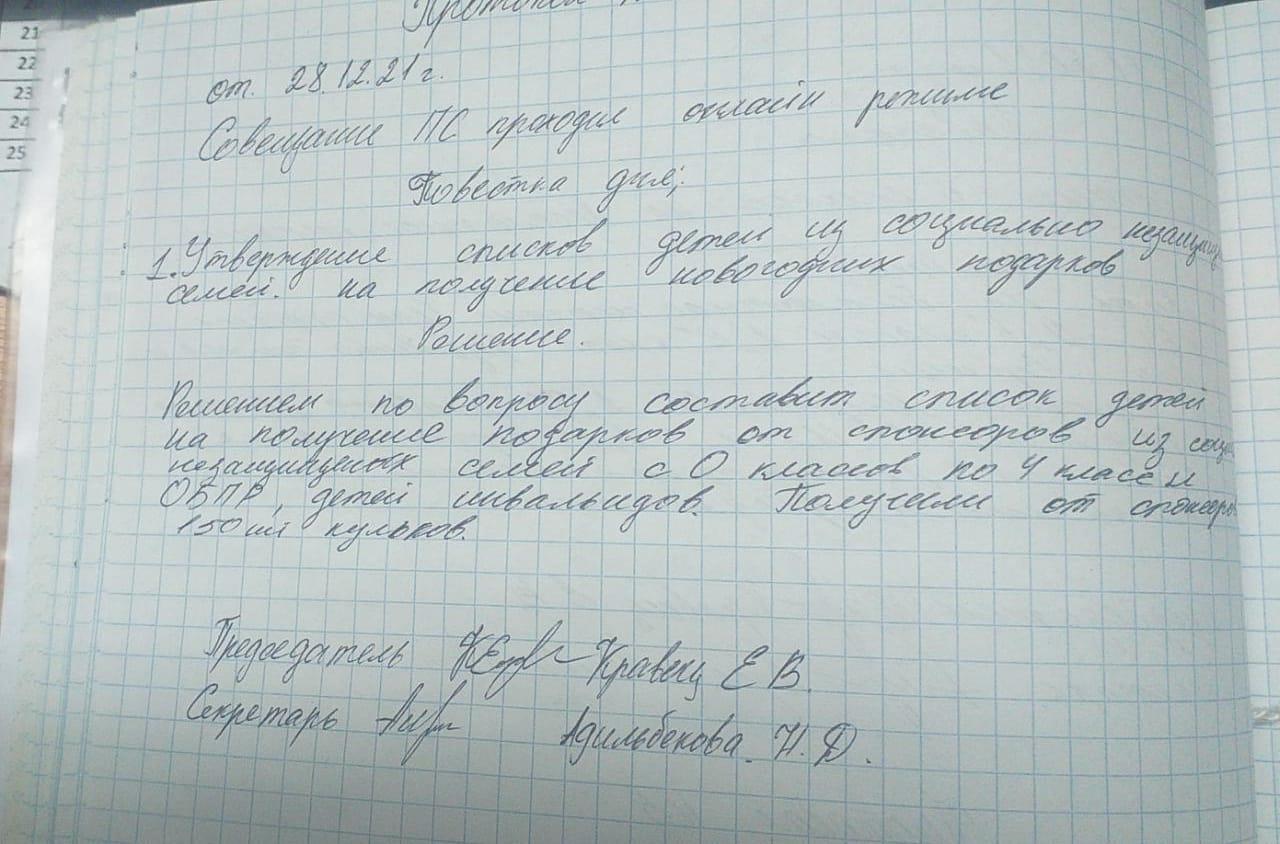 Протокол
от. 28.12.21 г.
Совещание ПС проходил онлайн режиме
Повестка дня;
1. Утверждение списков детей из социально
семей. на получение новогодних подарков
Решение.
Решением по вопросу составит список детей
на получение подарков от спонсоров из
незащищеных семей с 0 классов по 4 класс и
ОБПР, детей инвальидов. Получили от
150 шт кульков.
Председатель Кравец Е В.
Секретарь Адильбекова. Н. Д.
21
22
23
24
25